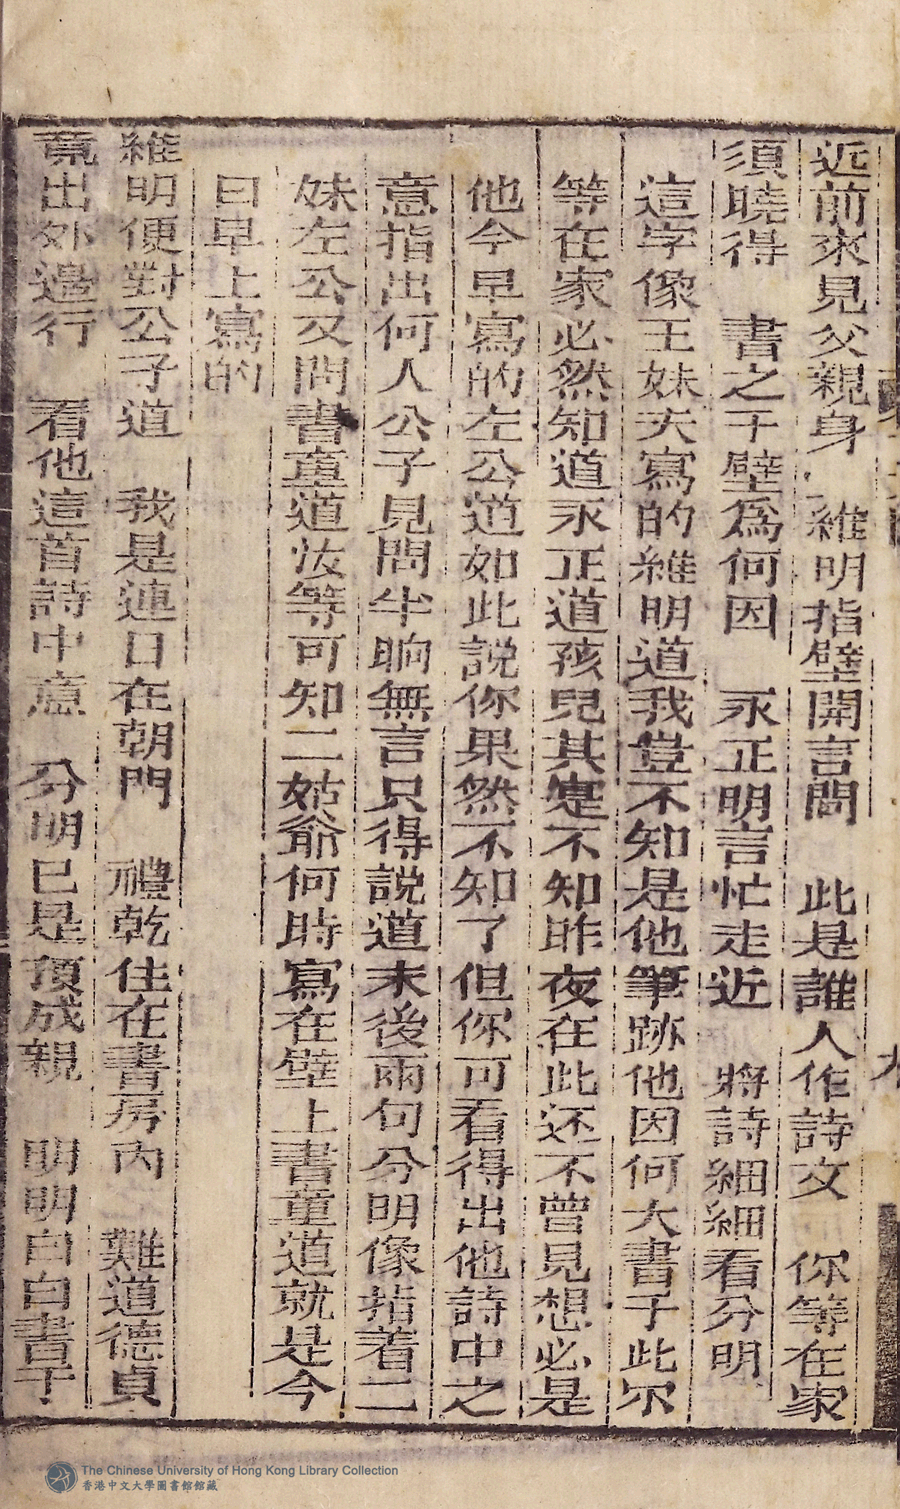 近前來見父親身　維明指壁開言問　此是誰人作詩文　你等在家
須曉得　書之于壁爲何因　永正明言忙走近　將詩細細看分明
這字像王妹夫寫的維明道我豈不知是他筆跡他因何大書于此尔
等在家必然知道永正道孩兒其寔不知昨夜在此还不曾見想必是
他今早寫的左公道如此說你果然不知了但你可看得出他詩中之
意指出何人公子見問半晌無言只得說道末後兩句分明像指着二
妹左公又問書童道汝等可知二姑爺何時寫在壁上書童道就是今
曰早上寫的
維明便對公子道　我是連日在朝門　禮乾住在書房內　難道德貞
竟出外邊行　看他這首詩中意　分明已是頂成親　明明白白書于
The Chinese University of Hong Kong Library Collection
香港中文大學圖書館館藏